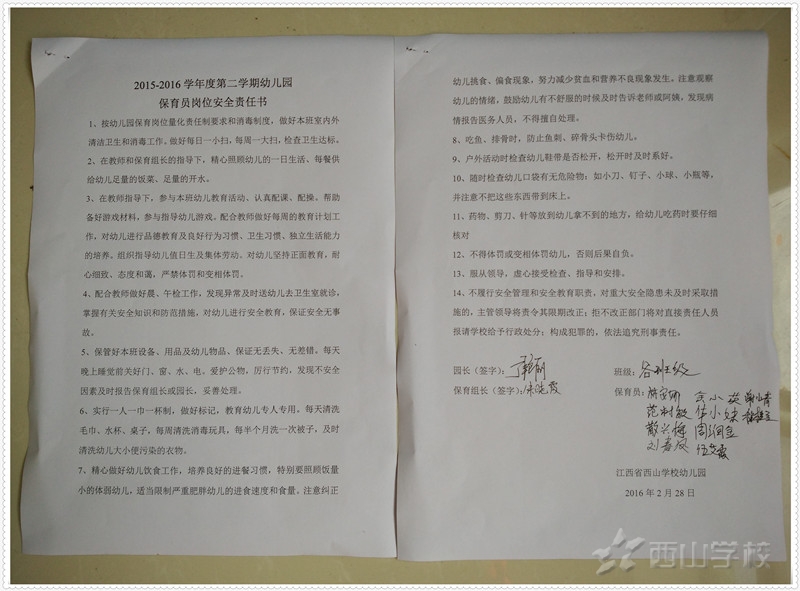 2015-2016 学年度第二学期幼儿园
保育员岗位安全责任书
1、按幼儿园保育岗位量化责任制要求和消毒制度，做好本班室内外
清洁卫生和消毒工作。做好每日一小扫，每周一大扫，检查卫生达标。
2、在教师和保育组长的指导下，精心照顾幼儿的一日生活、每餐供
给幼儿足量的饭菜、足量的开水。
3、在教师指导下，参与本班幼儿教育活动、认真配课、配操。帮助
备好游戏材料，参与指导幼儿游戏。配合教师做好每周的教育计划工
作，对幼儿进行品德教育及良好行为习惯、卫生习惯、独立生活能力
的培养。组织指导幼儿值日生及集体劳动。对幼儿坚持正面教育，耐
心细致、态度和蔼，严禁体罚和变相体罚。
4、配合教师做好晨、午检工作，发现异常及时送幼儿去卫生室就诊，
掌握有关安全知识和防范措施，对幼儿进行安全教育，保证安全无事
故。
5、保管好本班设备、用品及幼儿物品、保证无丢失、无差错。每天
晚上睡觉前关好门、窗、水、电。爱护公物，厉行节约，发现不安全
因素及时报告保育组长或园长，妥善处理。
6、实行一人一巾一杯制，做好标记，教育幼儿专人专用，每天清洗
毛巾、水杯、桌子，每周清洗消毒玩具，每半个月洗一次被子，及时
清洗幼儿大小便污染的衣物。
7、精心做好幼儿饮食工作，培养良好的进餐习惯，特别要照顾饭量
小的体弱幼儿，适当限制严重肥胖幼儿的进食速度和食量，注意纠正
幼儿挑食、偏食现象，努力减少贫血和营养不良现象发生。注意观察
幼儿的情绪，鼓励幼儿有不舒服的时候及时告诉老师或阿姨，发现病
情报告医务人员，不得擅自处理。
8、吃鱼、排骨时，防止鱼刺、碎骨头卡伤幼儿。
9、户外活动时检查幼儿鞋带是否松开，松开时及时系好。
10、随时检查幼儿口袋有无危险物：如小刀、钉子、小球、小瓶等，
并注意不把这些东西带到床上。
11、药物、剪刀、针等放到幼儿拿不到的地方，给幼儿吃药时要仔细
核对
12、不得体罚或变相体罚幼儿，否则后果自负。
13、服从领导，虚心接受检查、指导和安排。
14、不履行安全管理和安全教育职责，对重大安全隐患未及时采取措
施的，主管领导将责令其限期改正；拒不改正部门将对直接责任人员
报请学校给予行政处分；构成犯罪的，依法追究刑事责任。
园长（签字）：
班级：各班班级
保育组长（签字）：
保育员：
江西省西山学校幼儿园
2016 年 2 月 28 日
西山学校